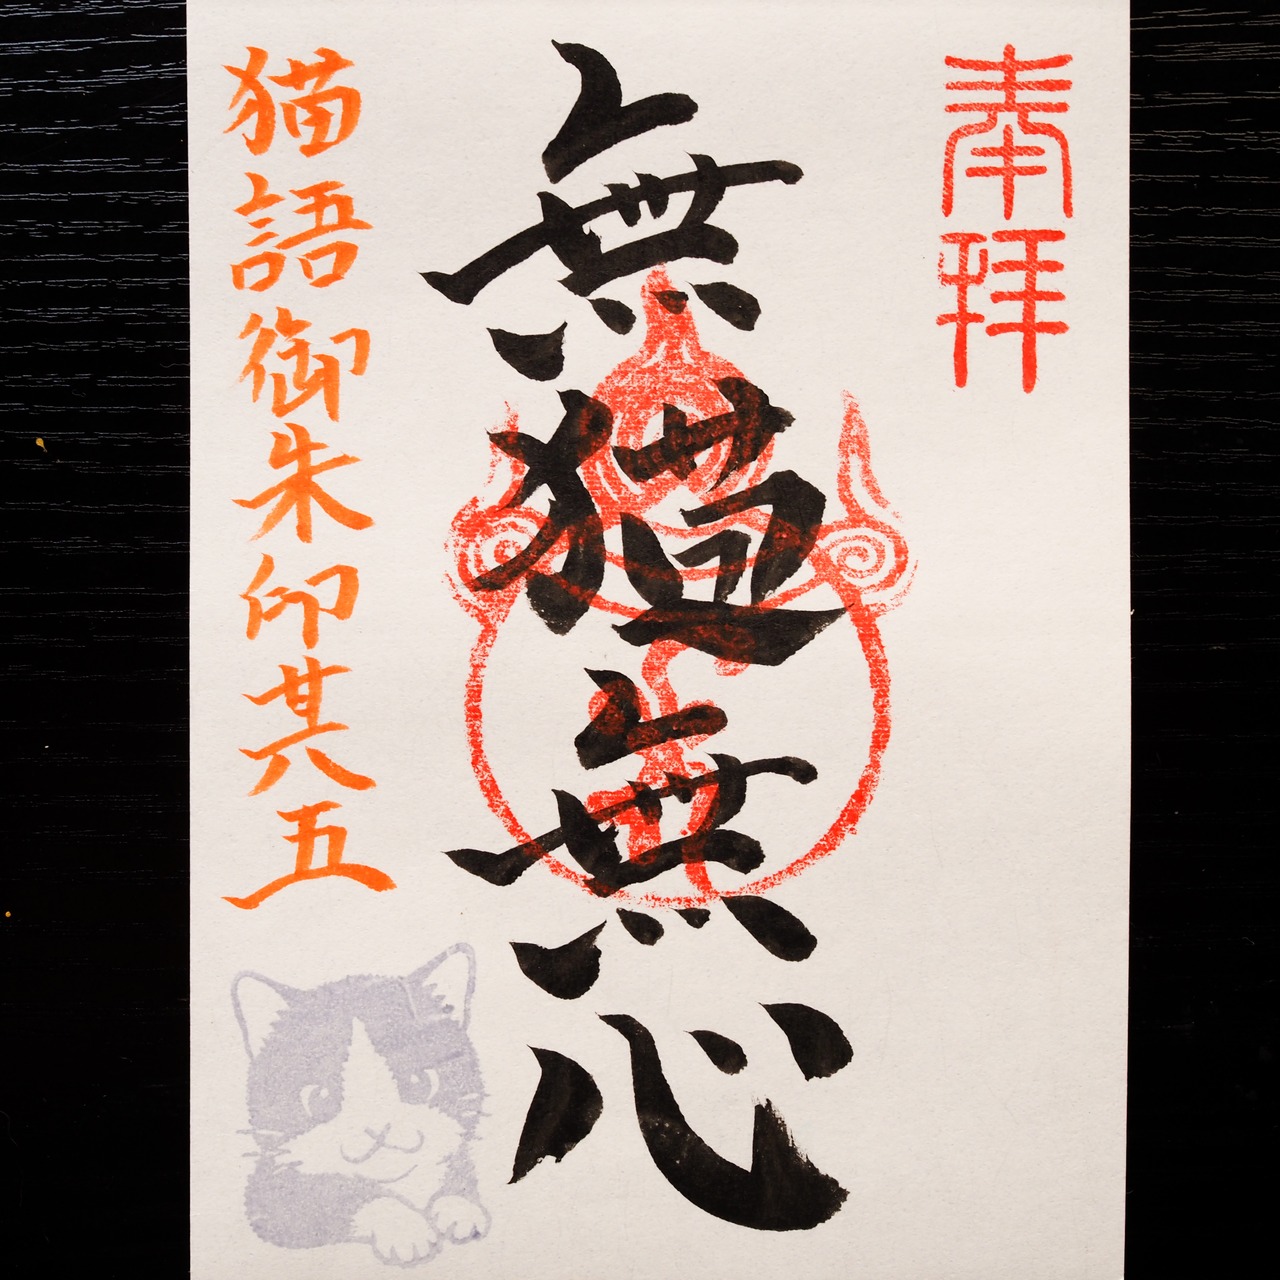 奉拝
無猫無心
猫語御朱印其五